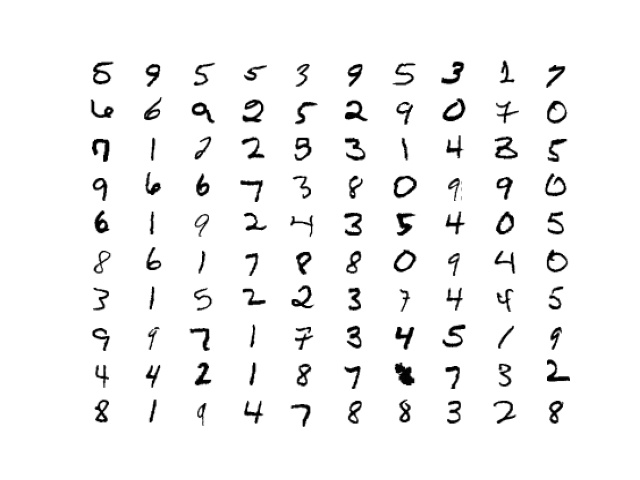 5 9 5 5 3 9 5 3 1 7
6 6 9 2 5 2 9 0 7 0
7 1 2 2 3 3 1 4 3 5
9 6 6 7 3 8 0 9 9 0
6 1 9 2 4 3 5 4 0 5
8 6 1 7 8 8 0 9 4 0
3 1 5 2 2 3 7 4 4 5
9 9 7 1 7 3 4 5 1 9
4 4 2 1 8 7 7 3 2
8 1 9 4 7 8 8 3 2 8